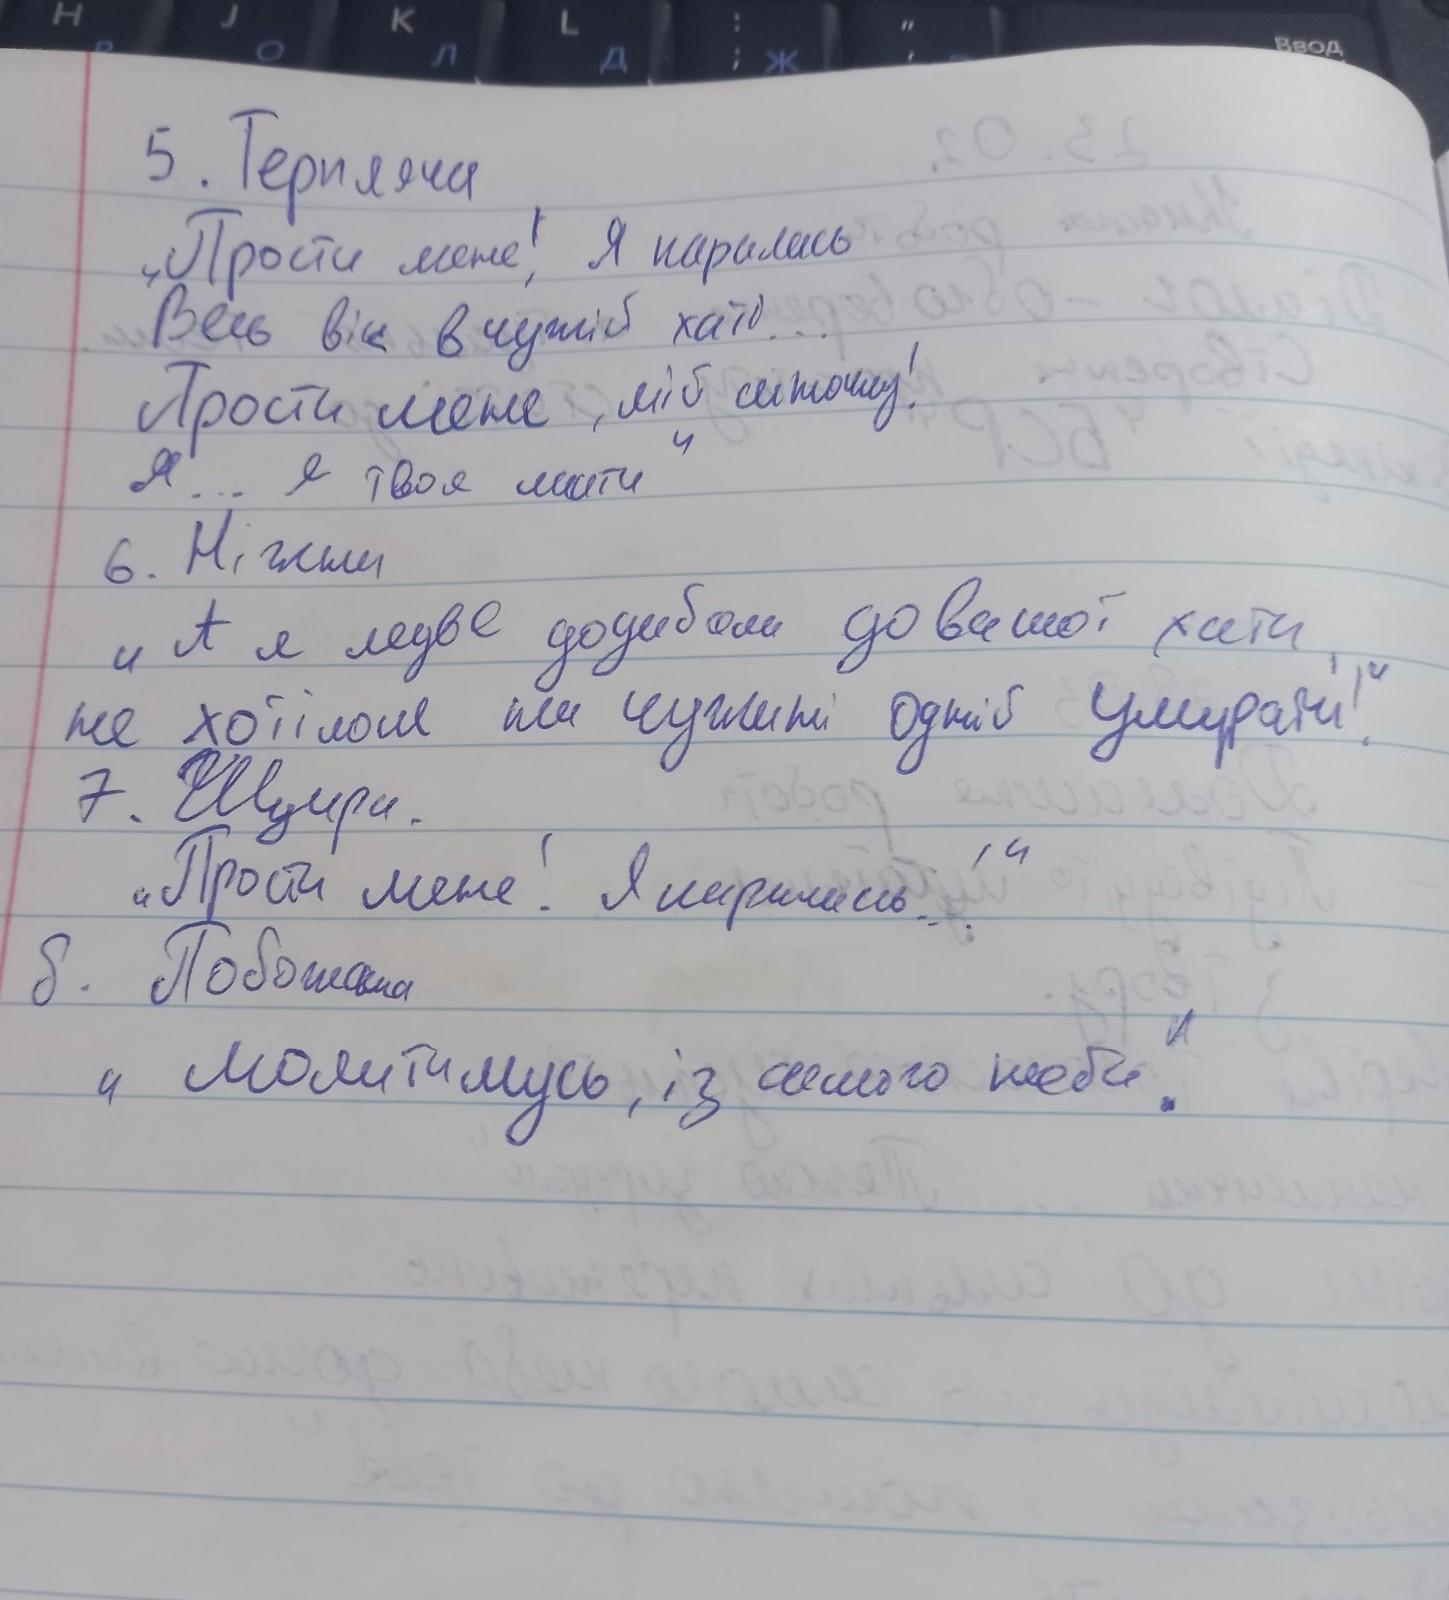 H J K L : "
Р О Л Д ; Ж ' Ввод
5. Терпляча
„Прости мене! Я каралась
Весь вік в чужій хаті...
Прости мене, мій синочку!
Я... я твоя мати"
6. Ніжна
„А я ледве додибала до вашої хати,
не хотілося на чужині одній умирати!"
7. Щира.
„Прости мене! Я каралась...!"
8. Побожна
„молитимусь, із самого неба."